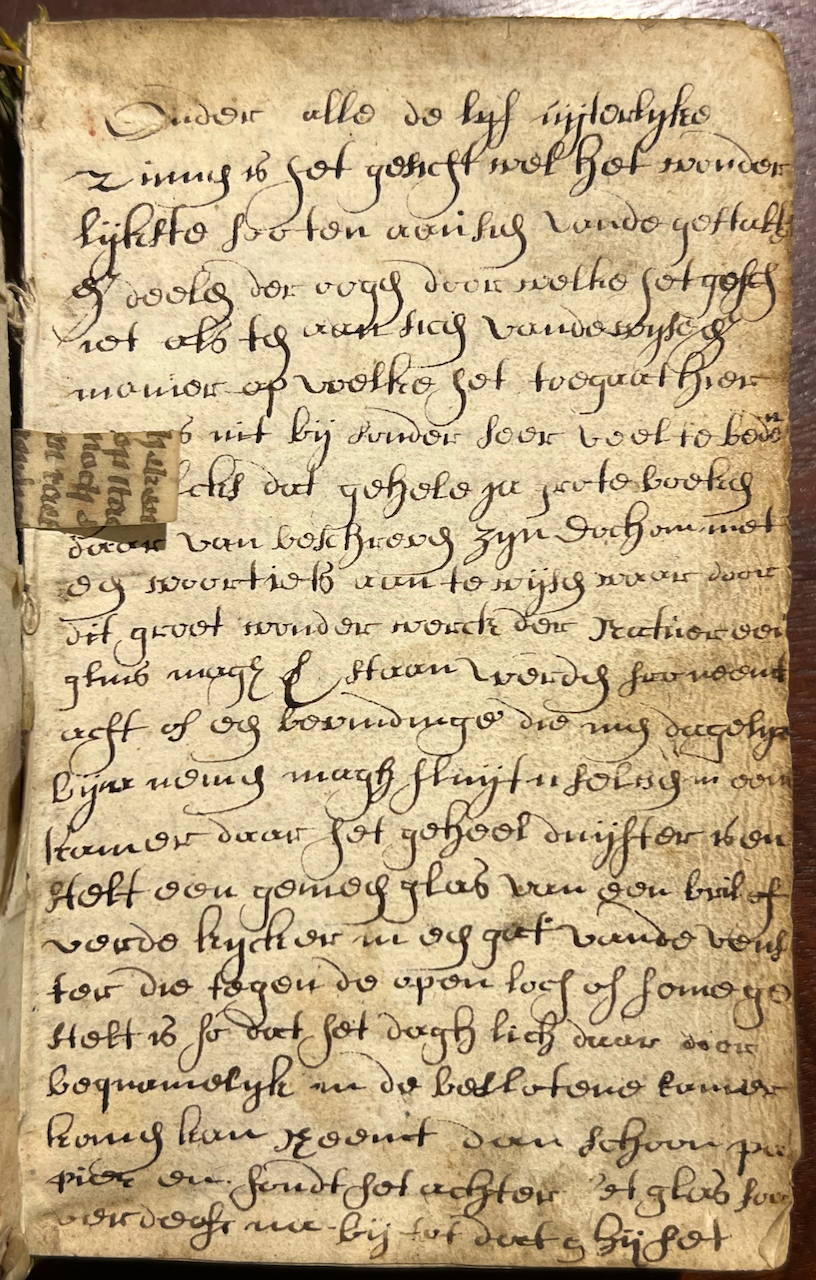 Onder alle de lijf uijterlyke
Zinnen is het gesicht wel het wonder
lijkste soo ten aansien vande gestalte
en deelen der oogen door welke het gesch
iet als ten aansien vande wijse en
manier op welke het toegaat hier
s uit bijsonder seer veel te beden
dat gehele ja grote boeken
daar van beschreven zijn doch om met
een woort iets aan te wijsen waar door
dit groot wonder werck der Natuer een
sins magh staan werden soo neemt
acht of een bevindinge die men dagelyx
nemen magh sluijt u selven in een
kamer daar het geheel duijster is en
stelt een gemeen glas van een bril of
verde kijcker in een gat vande vens
ter die tegen de open loch of sonne ge
stelt is so dat het dagh lich daar door
bequamelijk in de beslotene kamer
komen kan Neemt dan schoon pa
pier en hondt het achter 't glas soo
verde of na bij tot dat ghij het